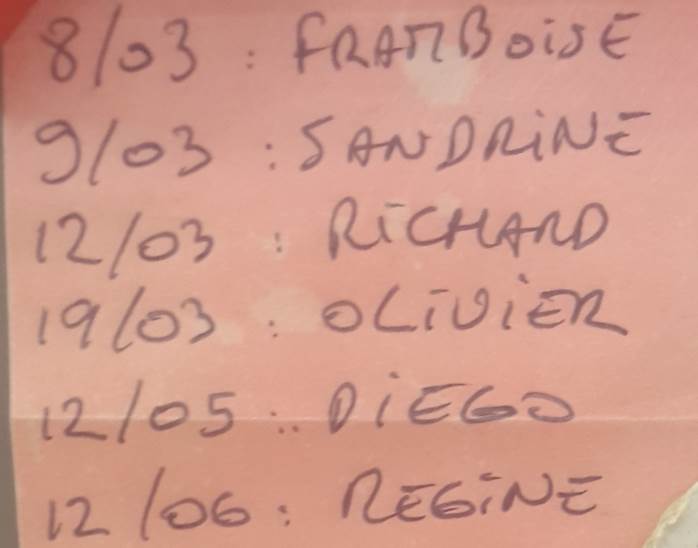 8/03 : FRAMBOISE
9/03 : SANDRINE
12/03 : RICHARD
19/03 : OLIVIER
12/05 : DIEGO
12/06 : REGINE